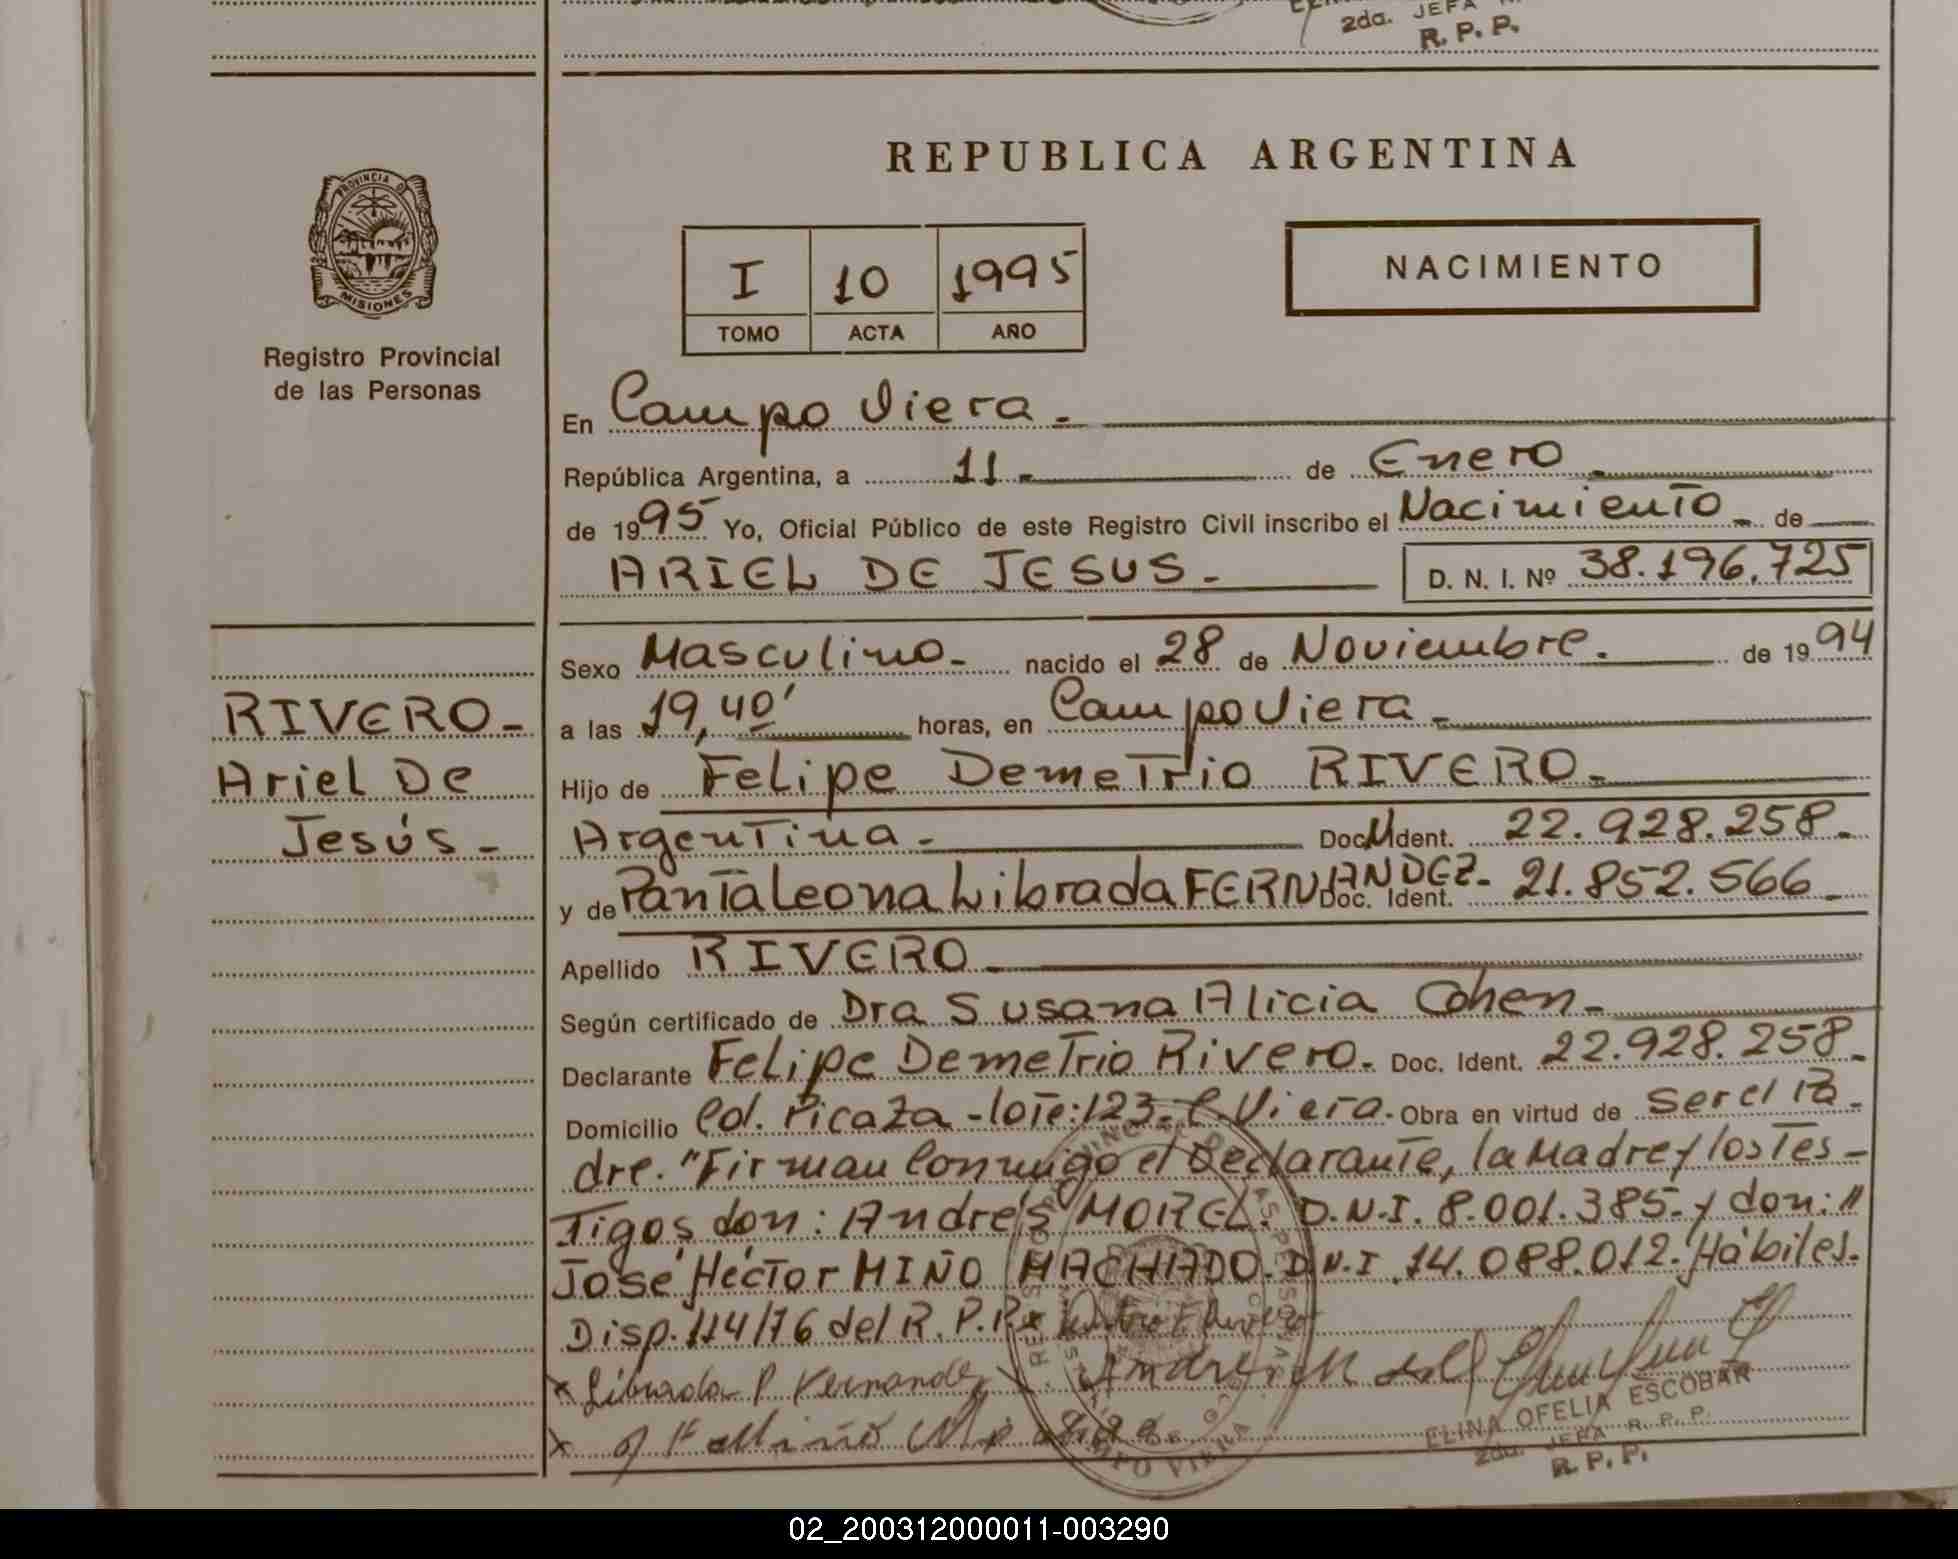 2da. JEFA
R. P. P.
PROVINCIA DE
MISIONES
Registro Provincial
de las Personas
REPUBLICA ARGENTINA
I 10 1995
TOMO ACTA AÑO
NACIMIENTO
En Campo Viera.
República Argentina, a 11- de Enero
de 1995 Yo, Oficial Público de este Registro Civil inscribo el Nacimiento de
ARIEL DE JESUS. D. N. I. Nº 38.196.725
RIVERO-
Ariel De
Jesús-
Sexo Masculino- nacido el 28 de Noviembre. de 1994
a las 19,40' horas, en Campo Viera-
Hijo de Felipe Demetrio RIVERO-
Argentina- Doc. Ident. 22.928.258-
y de Pantaleona Librada FERNANDEZ- Doc. Ident. 21.852.566
Apellido RIVERO
Según certificado de Dra Susana Alicia Cohen-
Declarante Felipe Demetrio Rivero. Doc. Ident. 22.928.258-
Domicilio Col. Picaza-lote:123-C.Viera. Obra en virtud de ser el Pa-
dre. "Firman Conmigo el Declarante, la Madre y los Tes-
Tigos don: Andrés MOREL. D.N.I. 8.001.385- y don: "
José Héctor MIÑO MACHADO. D.N.I. 14.088.012. Hábiles.
Disp. 114/76 del R. P. P.
x Librada P Fernandez
ELINA OFELIA ESCOBAR
2da. JEFA R. P. P.
R. P. P.
02_200312000011-003290